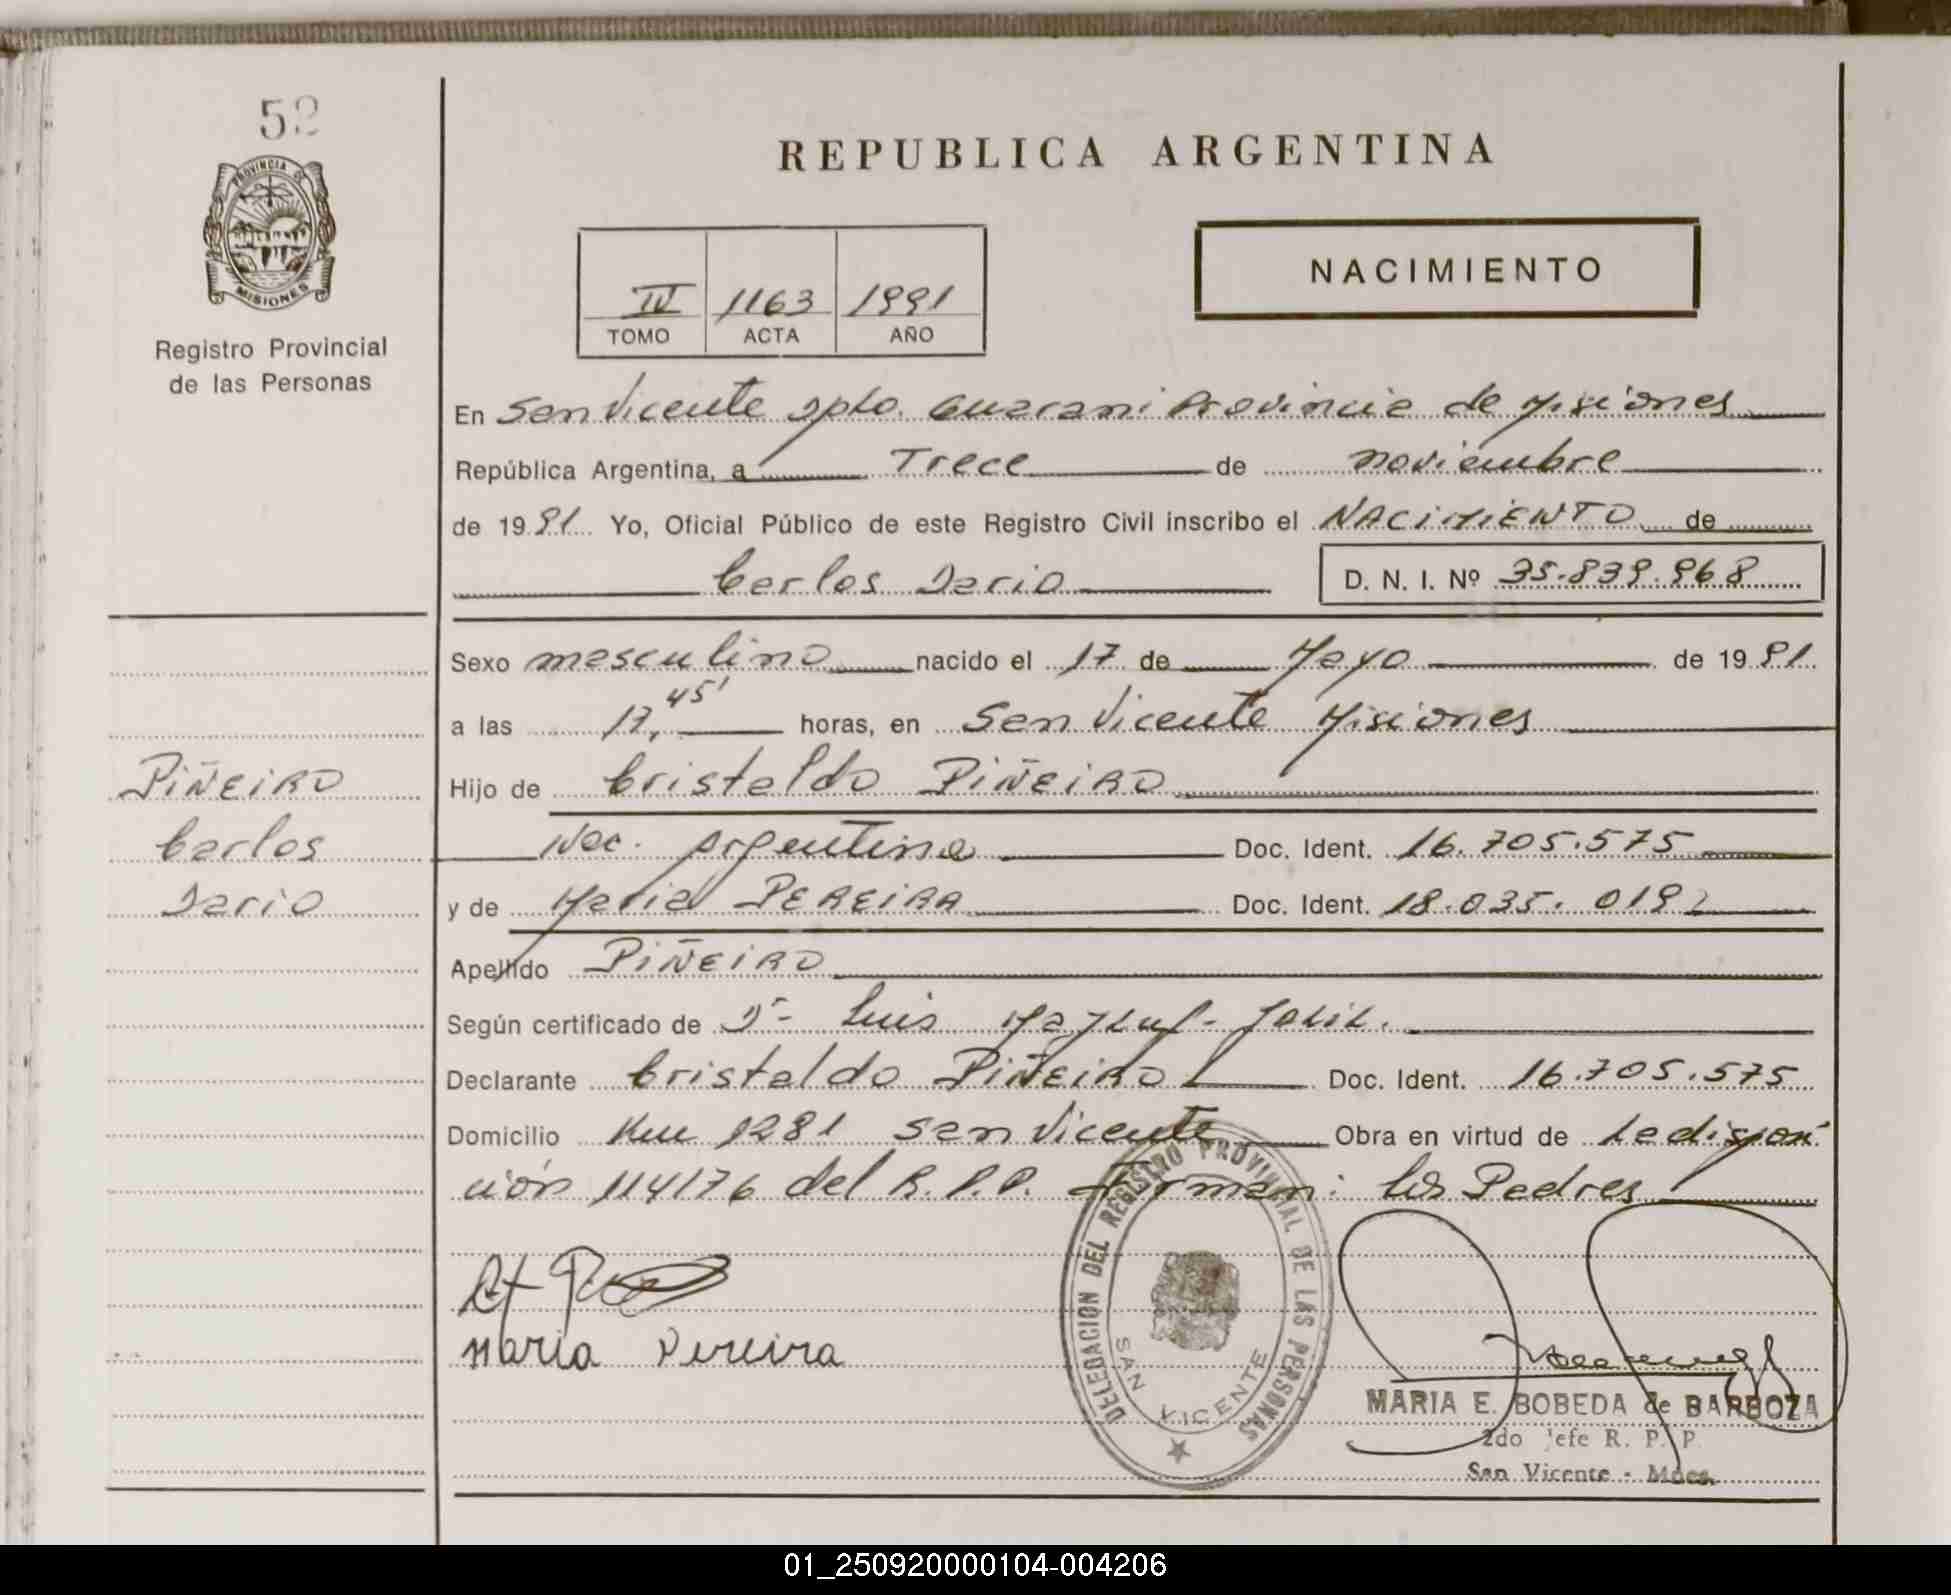 52
PROVINCIA DE
MISIONES
Registro Provincial
de las Personas
REPUBLICA ARGENTINA
NACIMIENTO
IV 1163 1991
TOMO ACTA AÑO
En San Vicente Dpto. Guarani Provincia de Misiones
República Argentina, a Trece de noviembre
de 1991 Yo, Oficial Público de este Registro Civil inscribo el NACIMIENTO de
Carlos Dario D. N. I. Nº 35.839.968
Sexo masculino nacido el 17 de Mayo de 1991
a las 17,45' horas, en San Vicente Misiones
Hijo de Cristaldo PIÑEIRO
Nac. Argentina Doc. Ident. 16.705.575
y de Maria PEREIRA Doc. Ident. 18.035.019
Apellido PIÑEIRO
Según certificado de Dr- Luis
Declarante Cristaldo PIÑEIRO Doc. Ident. 16.705.575
Domicilio Km 1281 San Vicente Obra en virtud de La disposi
ción 114176 del R.P.P. Firman: los Padres
PIÑEIRO
Carlos
Dario
Maria Pereira
DELEGACION DEL REGISTRO PROVINCIAL DE LAS PERSONAS
SAN VICENTE
MARIA E. BOBEDA de BARBOZA
2do Jefe R. P. P.
San Vicente - Mnes.
01_250920000104-004206